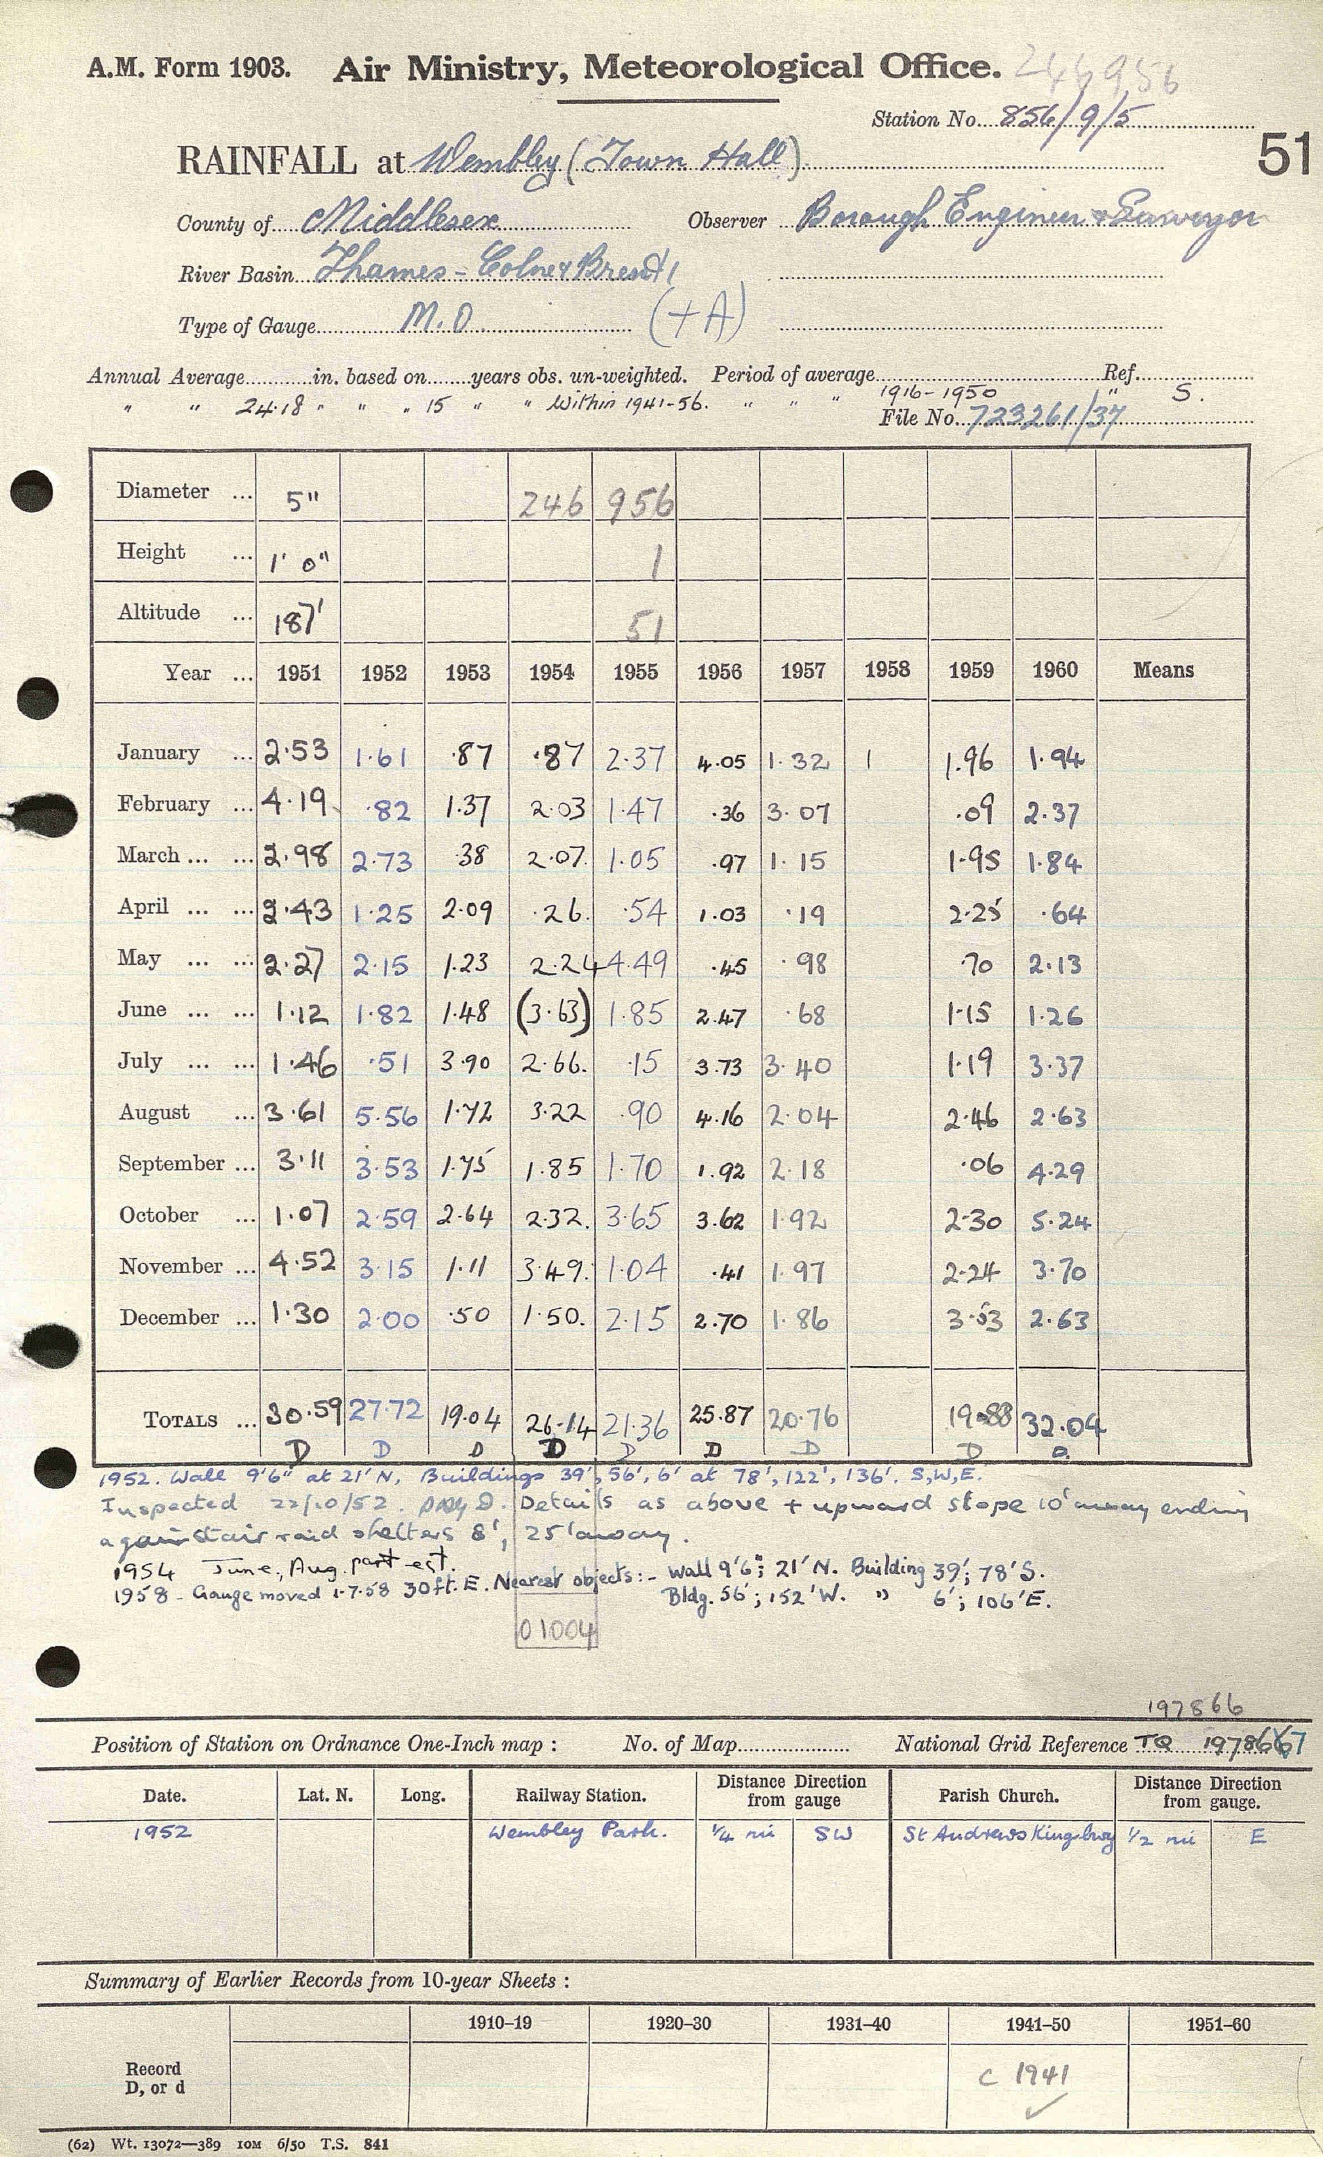 246956
A.M. Form 1903. Air Ministry, Meteorological Office.
Station No. 856/9/5
51
RAINFALL at Wembley (Town Hall)
County of Middlesex Observer Borough Engineer & Surveyor
River Basin Thames - Colne & Brent
Type of Gauge M.O. (+A)
Annual Average in. based on years obs. un-weighted. Period of average Ref.
" " 24.18 " " " 15 " " Within 1941-56. " " " 1916-1950 " S.
File No. 723261/37
Diameter ... 5" 246 956
Height ... 1' 0" 1
Altitude ... 187' 51
Year ... 1951 1952 1953 1954 1955 1956 1957 1958 1959 1960 Means
January ... 2.53 1.61 .87 .87 2.37 4.05 1.32 1 1.96 1.94
February ... 4.19 .82 1.37 2.03 1.47 .36 3.07 .09 2.37
March ... ... 2.98 2.73 .38 2.07 1.05 .97 1.15 1.95 1.84
April ... ... 2.43 1.25 2.09 .26 .54 1.03 .19 2.25 .64
May ... ... 2.27 2.15 1.23 2.24 4.49 .45 .98 .70 2.13
June ... ... 1.12 1.82 1.48 (3.63) 1.85 2.47 .68 1.15 1.26
July ... ... 1.46 .51 3.90 2.66 .15 3.73 3.40 1.19 3.37
August ... 3.61 5.56 1.72 3.22 .90 4.16 2.04 2.46 2.63
September ... 3.11 3.53 1.75 1.85 1.70 1.92 2.18 .06 4.29
October ... 1.07 2.59 2.64 2.32 3.65 3.62 1.92 2.30 5.24
November ... 4.52 3.15 1.11 3.49 1.04 .41 1.97 2.24 3.70
December ... 1.30 2.00 .50 1.50 2.15 2.70 1.86 3.53 2.63
TOTALS ... 30.59 27.72 19.04 26.14 21.36 25.87 20.76 19.88 32.04
D D D D D D D D D
1952. Wall 9'6" at 21' N, Buildings 39', 56', 6' at 78', 122', 136'. S,W,E.
Inspected 22/10/52. D. Details as above + upward slope 10' away ending
against air raid shelters 8', 25' away.
1954 June, Aug. part est.
1958 - Gauge moved 1-7-58 30ft. E. Nearest objects:- Wall 9'6"; 21' N. Building 39'; 78' S.
Bldg. 56'; 152' W. " 6'; 106' E.
01004
197866
Position of Station on Ordnance One-Inch map : No. of Map National Grid Reference TQ 197866 67
Date. Lat. N. Long. Railway Station. Distance from gauge Direction Parish Church. Distance from gauge. Direction
1952 Wembley Park. 1/4 mi SW St Andrews Kingsbury 1/2 mi E
Summary of Earlier Records from 10-year Sheets :
1910–19 1920–30 1931–40 1941–50 1951–60
Record
D, or d
c 1941
(62) Wt. 13072—389 10M 6/50 T.S. 841